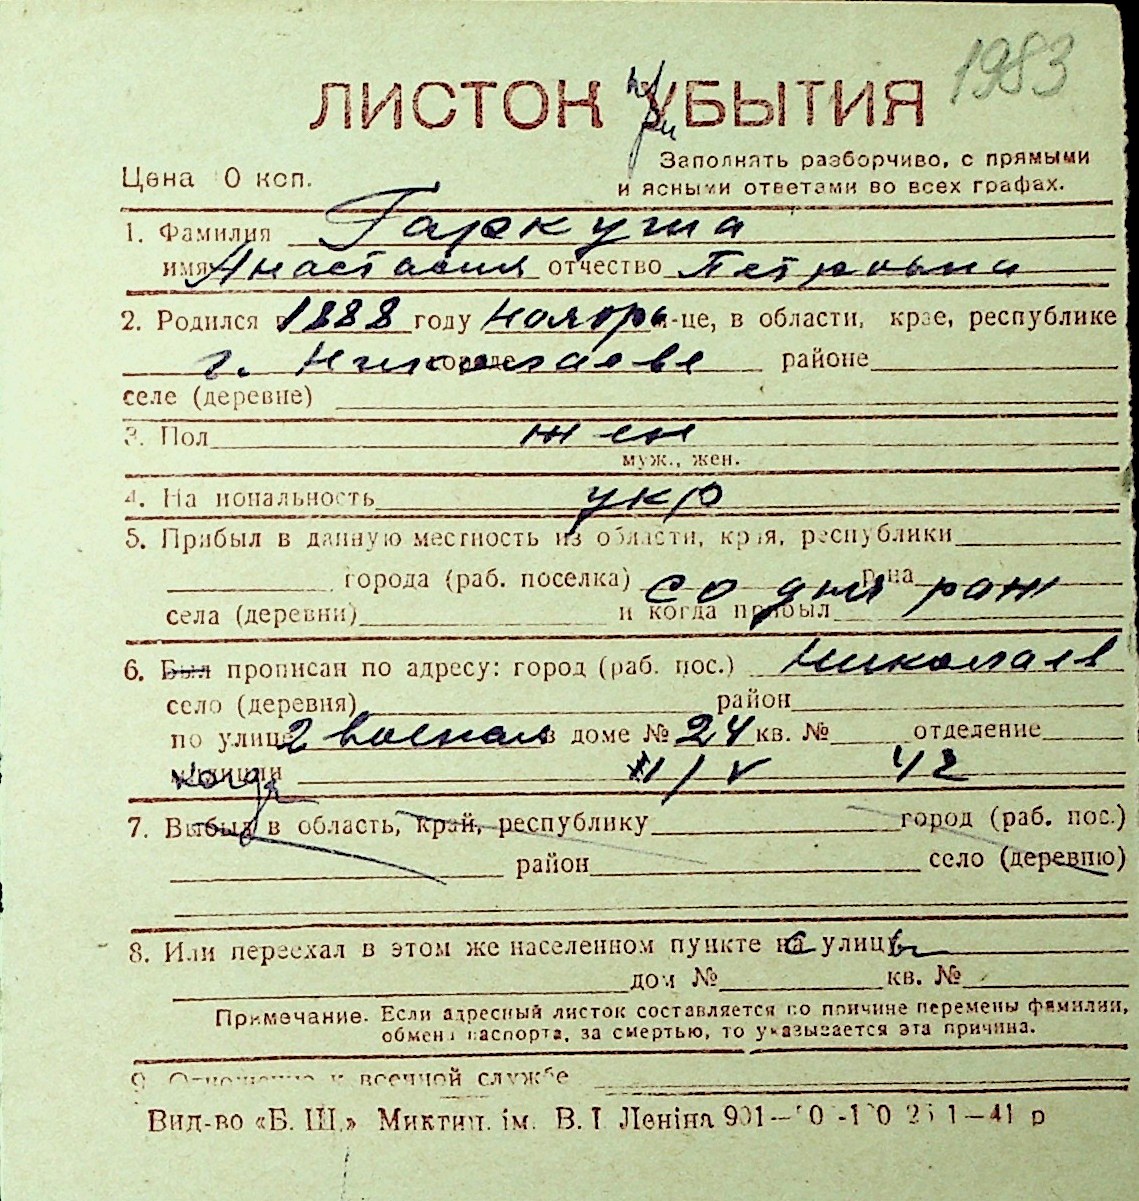 1983
ЛИСТОК УБЫТИЯ
при
Заполнять разборчиво, с прямыми
Цена 0 коп.
и ясными ответами во всех графах.
1. Фамилия Гаркуша
имя Анастасия отчество Петровна
2. Родился в 1888 году ноябрь м-це, в области, крае, республике
г. Николаеве городе районе
селе (деревне)
3. Пол жен
муж., жен.
4. Национальность укр
5. Прибыл в данную местность из области, края, республики
города (раб. поселка) со дня рож р-на
села (деревни) и когда прибыл
6. Был прописан по адресу: город (раб. пос.) Николаев
село (деревня) район
по улице 2 военная в доме № 24 кв. № отделение
милиции когда II/V 42
7. Выбыл в область, край, республику город (раб. пос.)
район село (деревню)
8. Или переехал в этом же населенном пункте на с улицы
дом № кв. №
Примечание. Если адресный листок составляется по причине перемены фамилии,
обмена паспорта, за смертью, то указывается эта причина.
9. Отношение к военной службе
Вид-во «Б. Ш.» Миктип. ім. В. І. Леніна 41 р